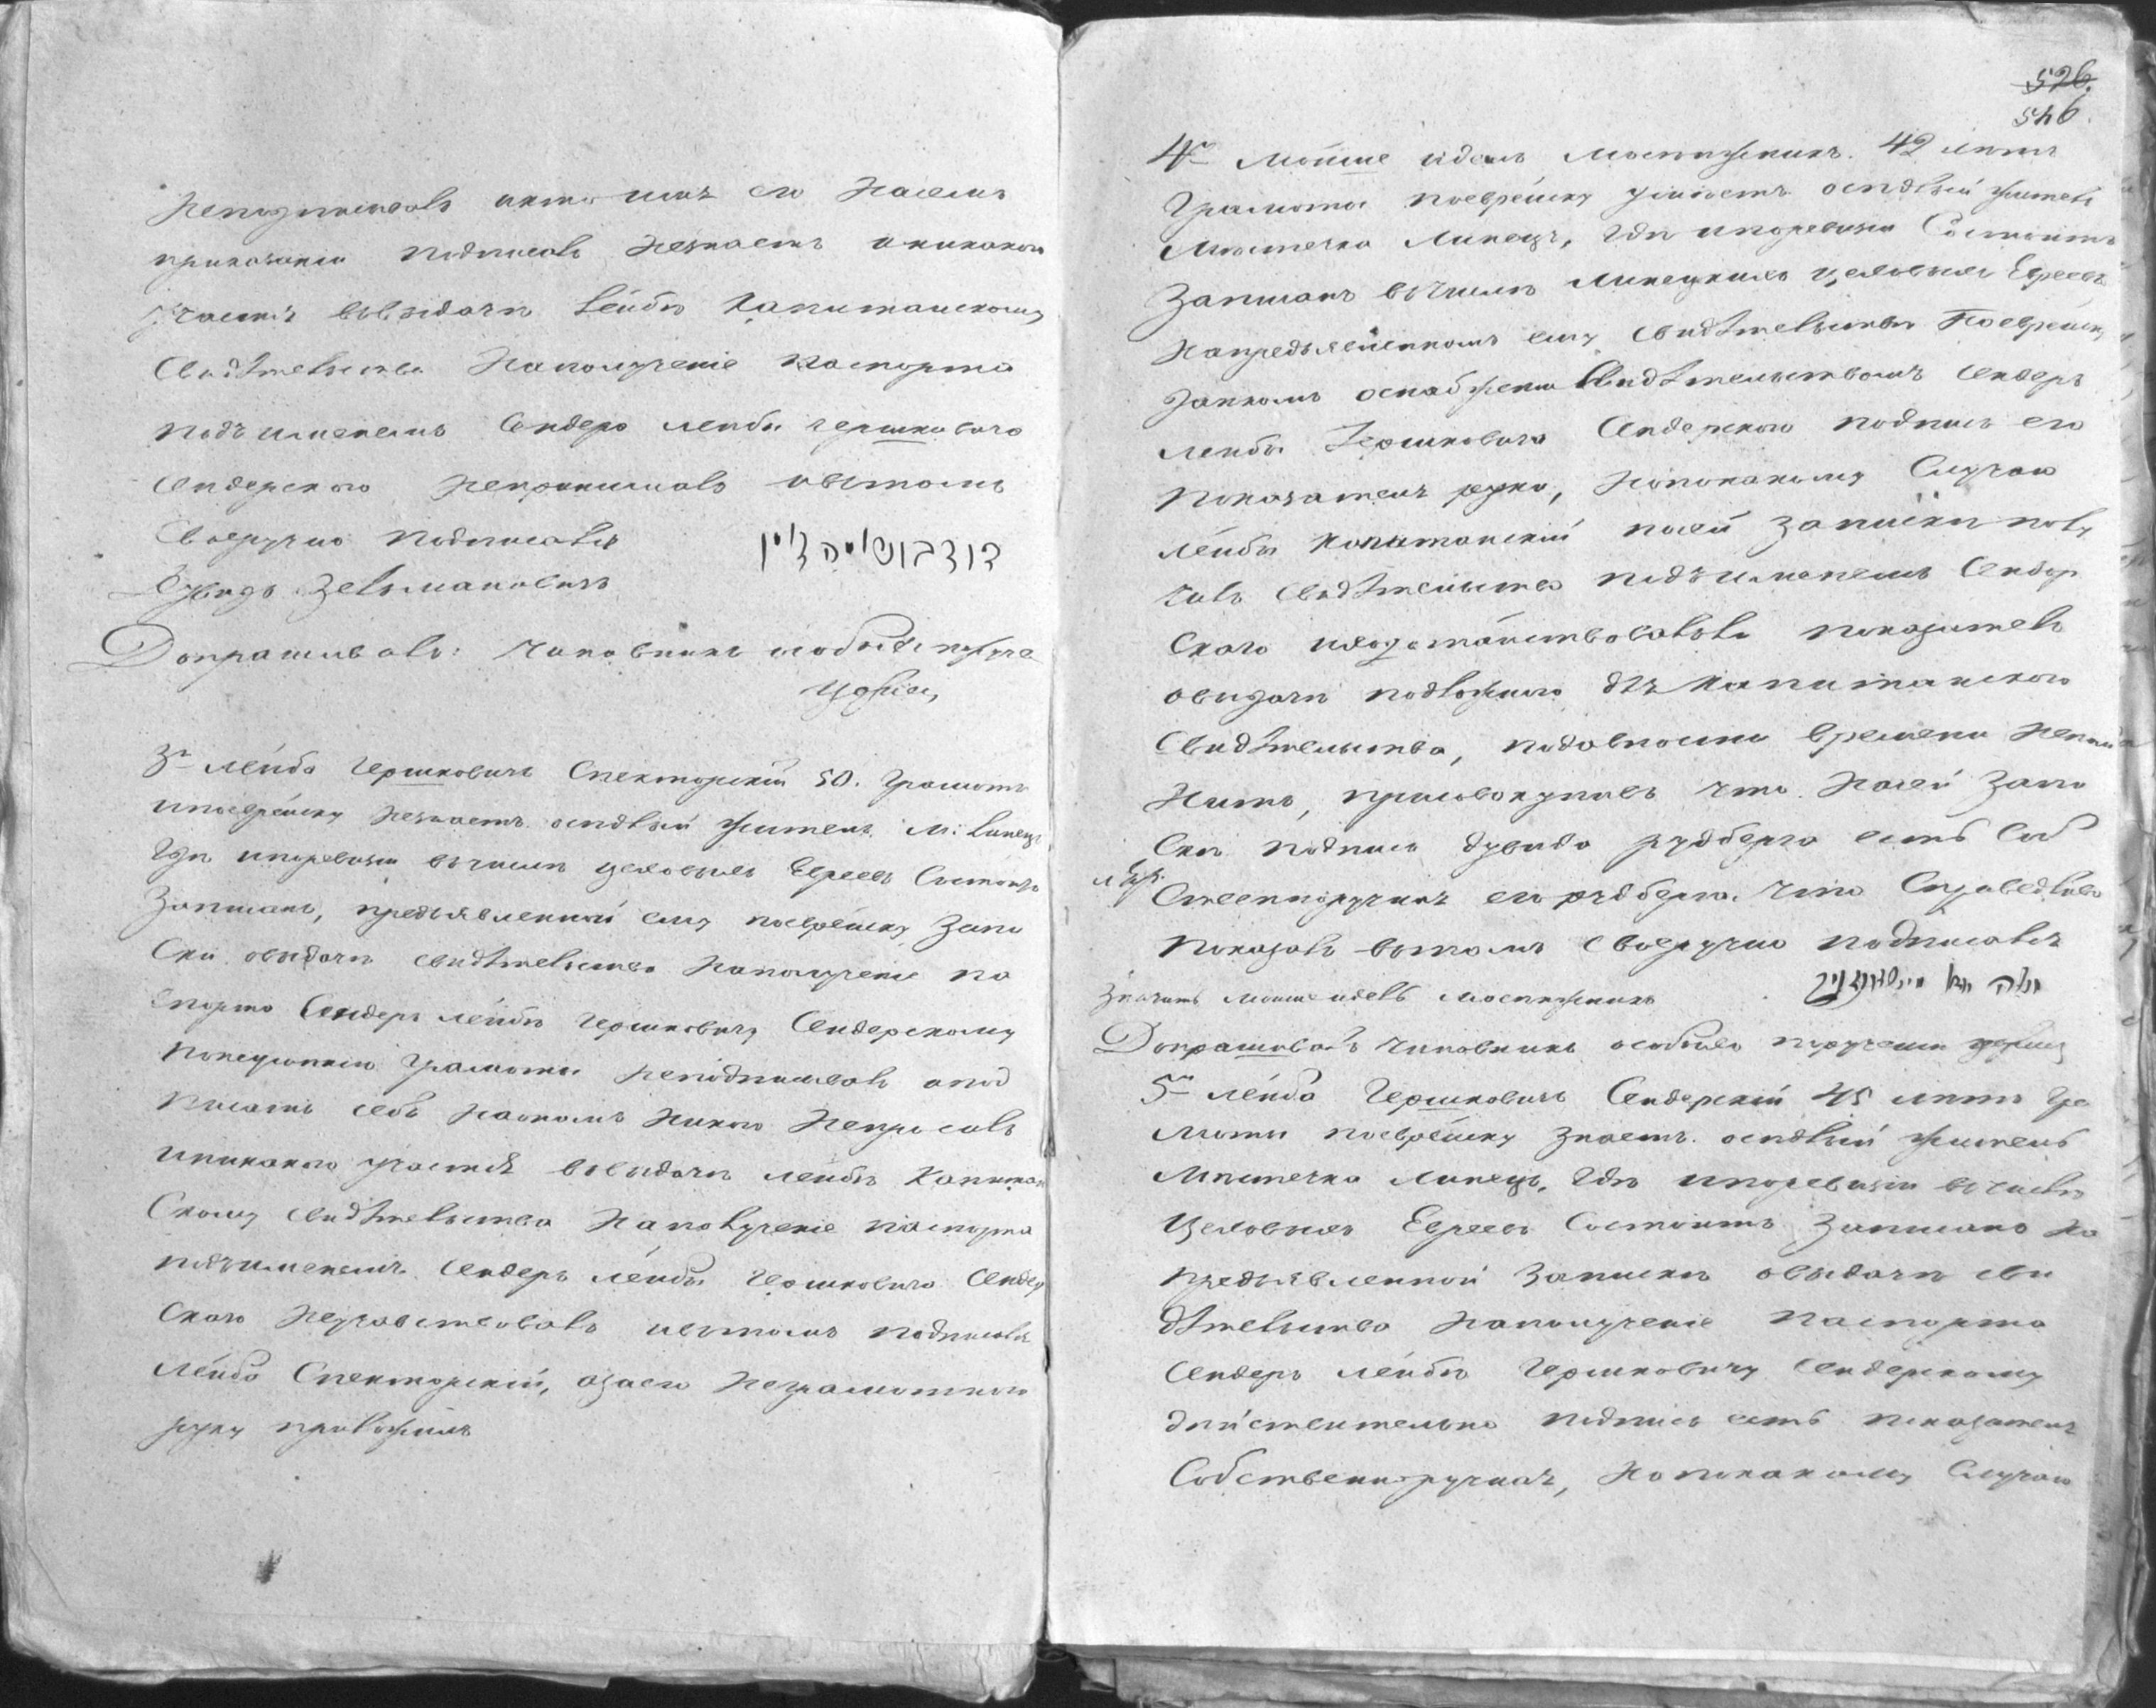 неподписывалъ и кто имя его на семъ
приказании подписалъ незнаетъ и никакого
участія в выдачи Лейбѣ Капитанскому
свидѣтельства на получение паспорта
подъ именемъ Сендера Лейбы Гершковича
Сендерского непринималъ и в томъ
своеручно подписался
Дувидъ Зельмановичъ
Допрашивалъ: чиновникъ особыхъ поруче
3е Лейба Гершковичъ Спекторский 50. грамотѣ
и поеврейску незнаетъ оседлый житель м: Липецъ
где и по ревизии в числе цеховыхъ Евреевъ состоитъ
записанъ, предъявленной ему поеврейску запи
ски о выдачи свидѣтельства на получение па
спорта Сендеръ Лейбѣ Гершковичу Сендерскому
по неумению грамоты неподписывалъ и под
писать себѣ на ономъ никого непросилъ
и никакого участія в выдачи Лейбѣ Капитан
скому свидѣтельства на получение паспорта
подъ именемъ Сендеръ Лейбы Гершковича Сендер
ского неучаствовалъ и в томъ подписался
Лейба Спекторский, а за его неграмотного
руку приложилъ
526.
546.
4е Мойше Идель Мостижникъ. 42 летъ
грамоты поеврейску умѣетъ оседлый житель
местечка Липецъ, где и по ревизии состоитъ
записанъ в числе Липецкихъ цеховыхъ Евреевъ
на предъявленномъ ему свидѣтельстве поеврейску
данномъ о снабжении свидѣтельствомъ Сендеръ
Лейбы Гершковича Сендерского подпись его
показателя рука, но по какому случаю
Лейба Капитанский по сей записки полу
чилъ свидѣтельство подъ именемъ Сендер
ского и ходатайствовалъ ли показатель
о выдачи подложного для Капитанского
свидѣтельства, по давности времени непом
нитъ, присовокупивъ что на сей запи
ске подпись Дувида Рудберга есть соб
ственноручная его Рудберга. Что справедливо
показалъ в томъ своеручно подписался
значитъ Мойше Идель Мостижникъ
Допрашивалъ чиновникъ особыхъ поручени
5е Лейба Гершковичъ Сендерский 45 летъ гра
моты поеврейску знаетъ оседлый житель
местечка Липецъ, где и по ревизии в числе
цеховыхъ Евреевъ состоитъ записанъ на
предъявленной записки о выдачи сви
дѣтельства на получение паспорта
Сендеръ Лейбѣ Гершковичу Сендерскому
действительно подпись есть показателя
собственноручная, но по какому случаю